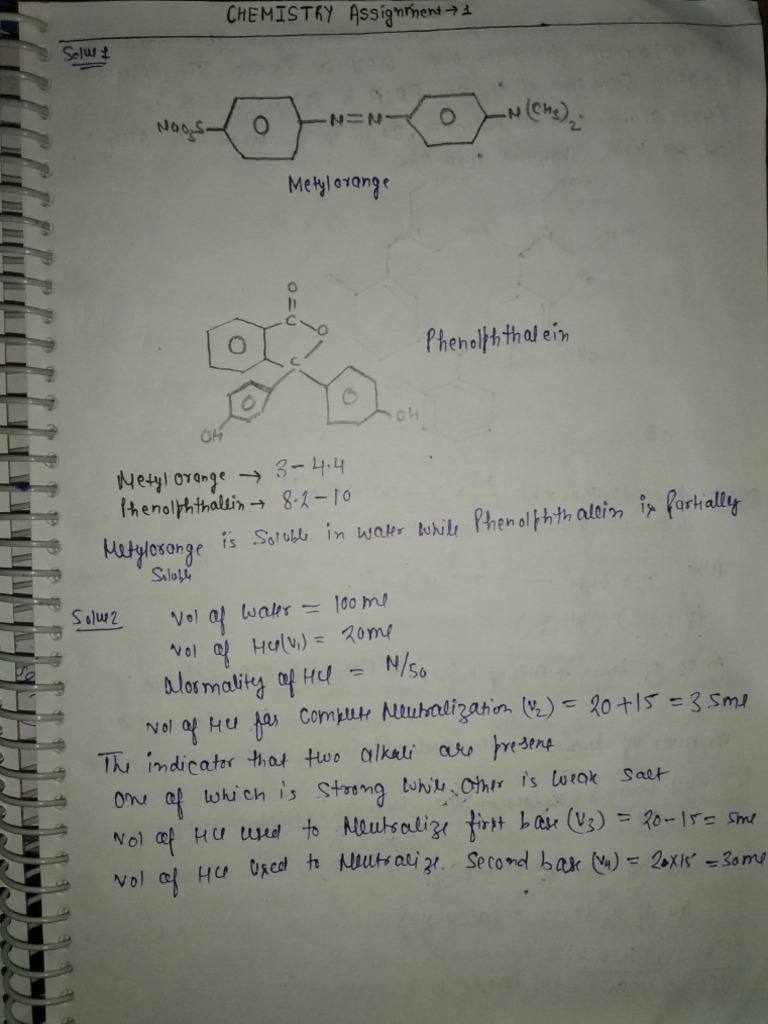 CHEMISTRY Assignment → 1
Solu 1
NaO3S- -N=N- -N(CH3)2
Metylorange
O
C
O
C
OH
OH
Phenolphthalein
Metyl orange → 3-4.4
Phenolphthallein → 8.2-10
Metylorange is Soluble in water while Phenolphthalein is Partially
Soluble
Solu 2
Vol of water = 100ml
Vol of Hcl(V1) = 20ml
Normality of Hcl = N/50
Vol of Hcl for complete Neutralization (V2) = 20+15 = 35ml
The indicator that two alkali are present
one of which is strong while other is weak salt
Vol of Hcl used to Neutralize first base (V3) = 20-15 = 5ml
Vol of Hcl used to Neutralize second base (V4) = 2x15 = 30ml